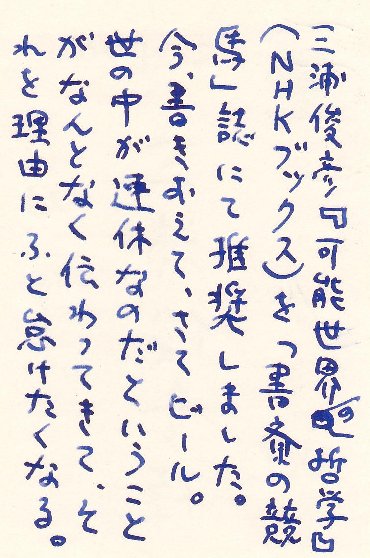 三浦俊彦『可能世界の哲学』
(NHKブックス)を「書斎の競
馬」誌にて推奨しました。
今、書きおえて、さてビール。
世の中が連休なのだということ
がなんとなく伝わってきて、そ
れを理由にふと怠けたくなる。